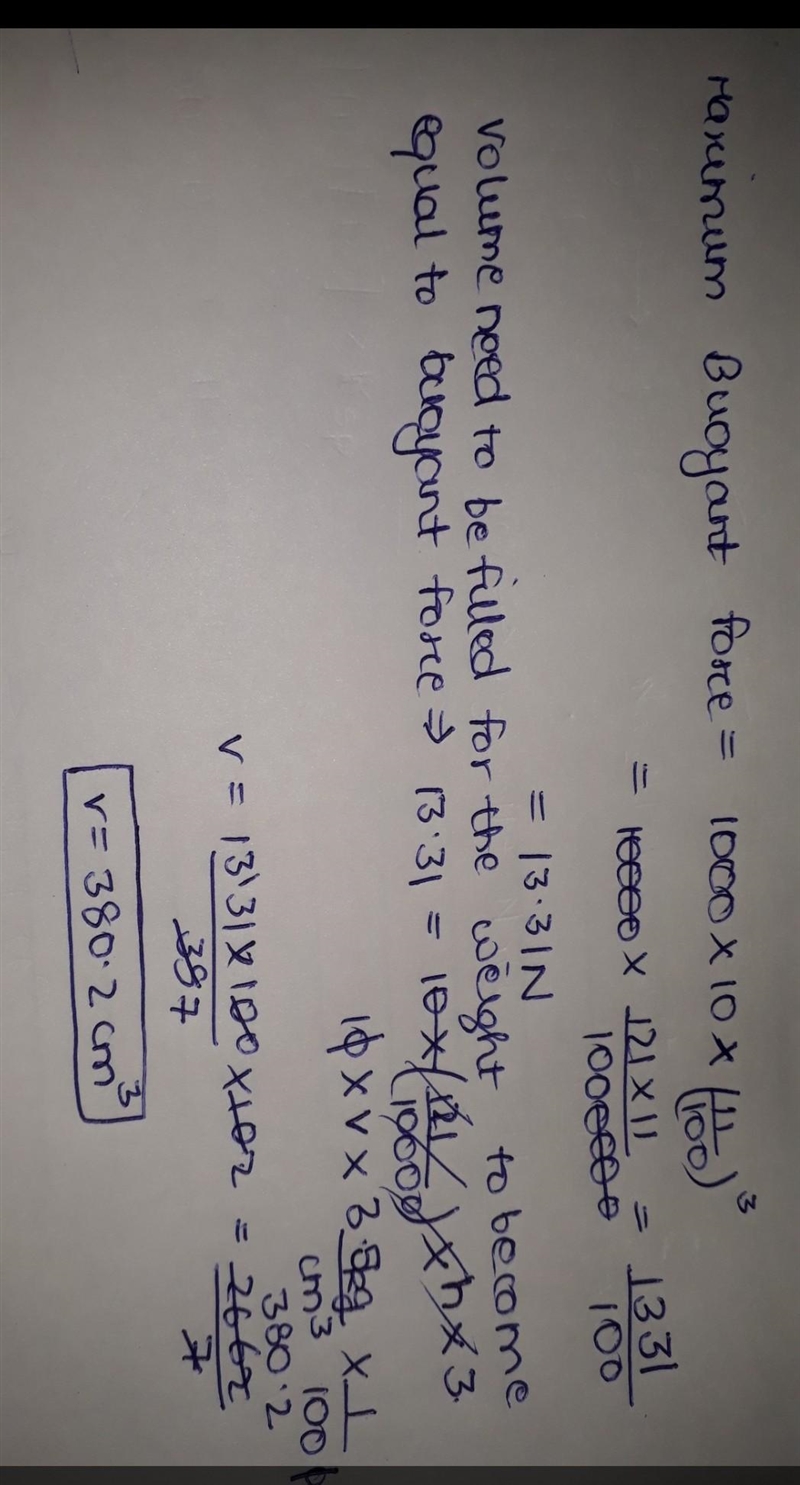 Maximum Buoyant force = 1000 x 10 x (11/100)³
= 10000 x 121 x 11/1000000 = 1331/100
= 13.31N
Volume need to be filled for the weight to become
equal to buoyant force ⇒ 13.31 = 10 x (121/10000) x h x 3.
10 x v x 3.5g/cm³ x 1/100
v = 13.31 x 100 x 10 2/7 = 2662/7 380.2
v = 380.2 cm³